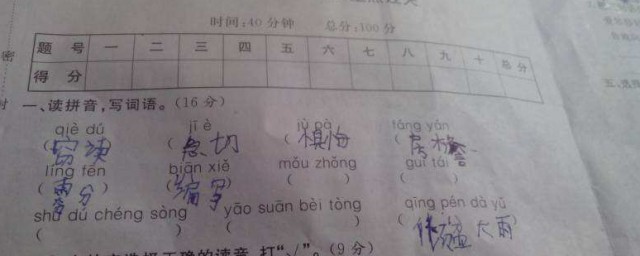 时间:40分钟 总分:100分
题号 一 二 三 四 五 六 七 八 九 十 总分
得分
密
一、读拼音,写词语。(16分)
qiè dú jī è jù pà táng yán
(窃读) (急切) ( 怕) ( )
líng fēn biān xiě móu zhǒng guì tái
(零分) (编写) ( ) ( )
shú dú chéng sòng yāo suān bèi tòng qīng pén dà yǔ
( ) ( ) ( 盆大雨
正确的读音,打“√”。(9分)
五、选